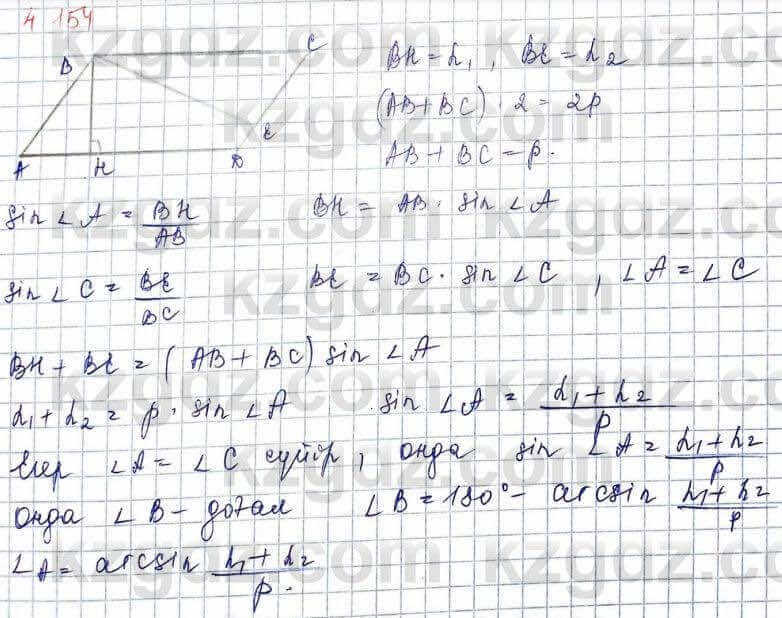 4 154
B C
A H D E
BH = h₁, BE = h₂
(AB + BC) · 2 = 2p
AB + BC = p.
sin ∠A = BH/AB BH = AB · sin ∠A
sin ∠C = BE/BC BE = BC · sin ∠C, ∠A = ∠C
BH + BE = (AB + BC) sin ∠A
h₁ + h₂ = p · sin ∠A sin ∠A = (h₁ + h₂)/p
Егер ∠A = ∠C сүйір, онда sin ∠A = (h₁ + h₂)/p
онда ∠B – доғал ∠B = 180° – arcsin (h₁ + h₂)/p
∠A = arcsin (h₁ + h₂)/p.
kzgdz.com